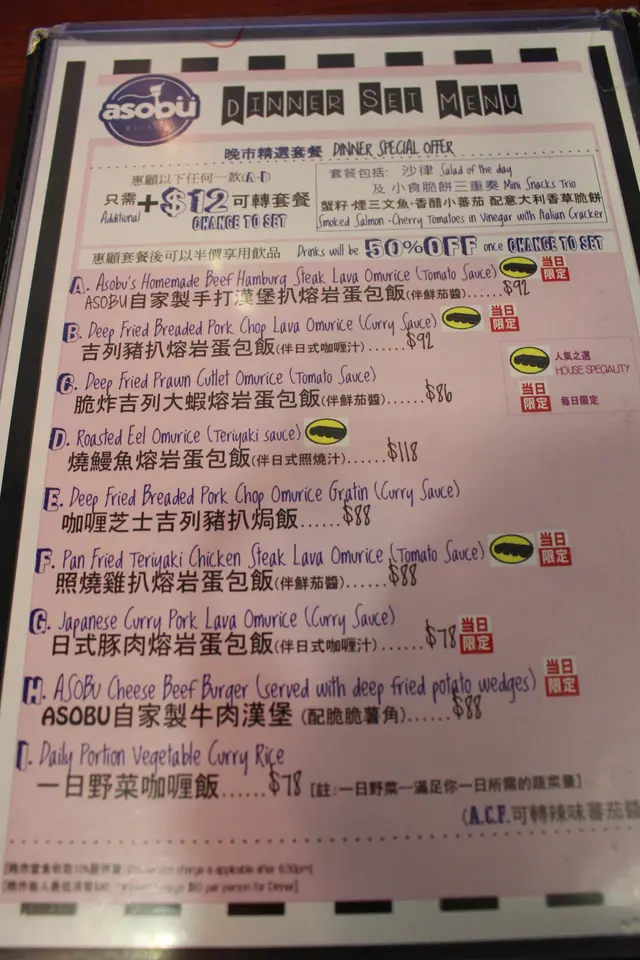 asobu
DINNER SET MENU
晚市精選套餐 DINNER SPECIAL OFFER
惠顧以下任何一款(A-I)
只需 +$12 可轉套餐
Additional CHANGE TO SET
套餐包括: 沙律 Salad of the day
及 小食脆餅三重奏 Mini Snacks Trio
蟹籽·煙三文魚·香醋小蕃茄 配意大利香草脆餅
Smoked Salmon·Cherry Tomatoes in Vinegar with Italian Cracker
惠顧套餐後可以半價享用飲品 Drinks will be 50%OFF once CHANGE TO SET
A. Asobu's Homemade Beef Hamburg Steak Lava Omurice (Tomato Sauce) 當日限定
ASOBU自家製手打漢堡扒熔岩蛋包飯(伴鮮茄醬)......$92
B. Deep Fried Breaded Pork Chop Lava Omurice (Curry Sauce) 當日限定
吉列豬扒熔岩蛋包飯(伴日式咖喱汁)......$92
人氣之選
HOUSE SPECIALITY
當日限定 每日限定
C. Deep Fried Prawn Cutlet Omurice (Tomato Sauce)
脆炸吉列大蝦熔岩蛋包飯(伴鮮茄醬)......$86
D. Roasted Eel Omurice (Teriyaki sauce)
燒鰻魚熔岩蛋包飯(伴日式照燒汁)......$118
E. Deep Fried Breaded Pork Chop Omurice Gratin (Curry Sauce)
咖喱芝士吉列豬扒焗飯......$88
F. Pan Fried Teriyaki Chicken Steak Lava Omurice (Tomato Sauce) 當日限定
照燒雞扒熔岩蛋包飯(伴鮮茄醬)......$88
G. Japanese Curry Pork Lava Omurice (Curry Sauce)
日式豚肉熔岩蛋包飯(伴日式咖喱汁)......$78 當日限定
H. ASOBU Cheese Beef Burger (served with deep fried potato wedges) 當日限定
ASOBU自家製牛肉漢堡 (配脆脆薯角)......$88
I. Daily Portion Vegetable Curry Rice
一日野菜咖喱飯......$78 [註:一日野菜—滿足你一日所需的蔬菜量]
(A.C.F.可轉辣味蕃茄醬
service charge is applicable after 6:30pm]
$80 per person for Dinner]